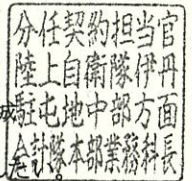 分任契約担当官
陸上自衛隊伊丹
駐屯地中部方面
会計隊本部業務科長
成
た。